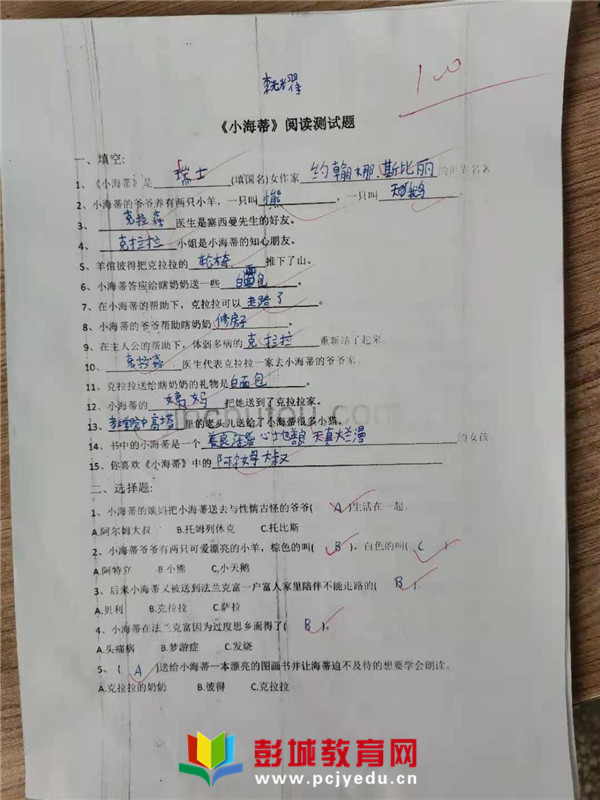 100
《小海蒂》阅读测试题
一、填空:
1、《小海蒂》是 瑞士 (填国名)女作家 约翰娜.斯比丽 的世界名著
2、小海蒂的爷爷养有两只小羊,一只叫 熊 ,一只叫 天鹅 。
3、 克拉森 医生是塞西曼先生的好友。
4、 克拉拉 小姐是小海蒂的知心朋友。
5、羊倌彼得把克拉拉的 轮椅 推下了山。
6、小海蒂答应给瞎奶奶送一些 白面包 。
7、在小海蒂的帮助下,克拉拉可以 走路了 。
8、小海蒂的爷爷帮助瞎奶奶 修房子 。
9、在主人公的帮助下,体弱多病的 克拉拉 重新站了起来
10、 克拉森 医生代表克拉拉一家去小海蒂的爷爷家
11、克拉拉送给瞎奶奶的礼物是 白面包 。
12、小海蒂的 姨妈 把她送到了克拉拉家。
13、 高塔 里的老头儿送给了小海蒂很多小猫。
14、书中的小海蒂是一个 善良 天真烂漫 的女孩
15、你喜欢《小海蒂》中的 阿尔姆大叔
二、选择题:
1、小海蒂的姨妈把小海蒂送去与性情古怪的爷爷( A )生活在一起.
A.阿尔姆大叔 B.托姆列休克 C.托比斯
2、小海蒂爷爷有两只可爱漂亮的小羊,棕色的叫( B ),白色的叫( C )
A.阿特立 B.小熊 C.小天鹅
3、后来小海蒂又被送到法兰克富一户富人家里陪伴不能走路的( B )
A.贝利 B.克拉拉 C.萨拉
4、小海蒂在法兰克富因为过度思乡而得了( B )。
A.头痛病 B.梦游症 C.发烧
5、( A )送给小海蒂一本漂亮的图画书并让海蒂迫不及待的想要学会朗读。
A.克拉拉的奶奶 B.彼得 C.克拉拉
彭城教育网
www.pcjyedu.cn